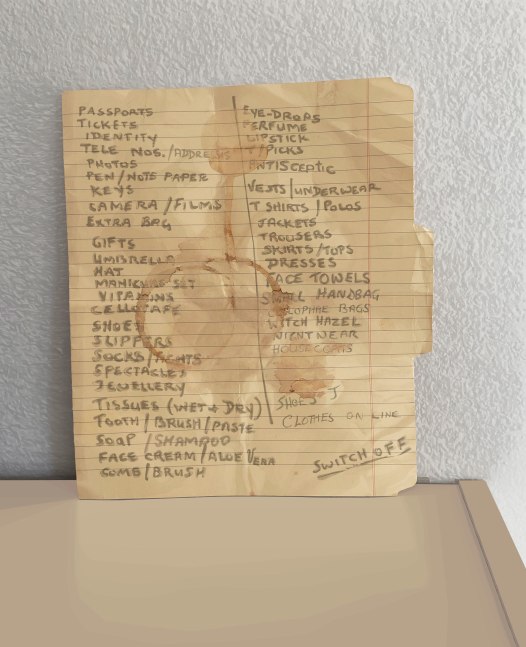 PASSPORTS
TICKETS
IDENTITY
TELE NOS./ADDRESS
PHOTOS
PEN/NOTE PAPER
KEYS
CAMERA/FILMS
EXTRA BAG
GIFTS
UMBRELLA
HAT
MANICURE SET
VITAMINS
CELLOTAPE
SHOES
SLIPPERS
SOCKS/TIGHTS
SPECTACLES
JEWELLERY
TISSUES (WET + DRY)
TOOTH/BRUSH/PASTE
SOAP/SHAMPOO
FACE CREAM/ALOE VERA
COMB/BRUSH
EYE-DROPS
PERFUME
LIPSTICK
T/PICKS
ANTISCEPTIC
VESTS/UNDERWEAR
T SHIRTS/POLOS
JACKETS
TROUSERS
SKIRTS/TOPS
DRESSES
FACE TOWELS
SMALL HANDBAG
CELLOPHANE BAGS
WITCH HAZEL
NIGHTWEAR
HOUSECOATS
CLOTHES ON LINE
SWITCH OFF